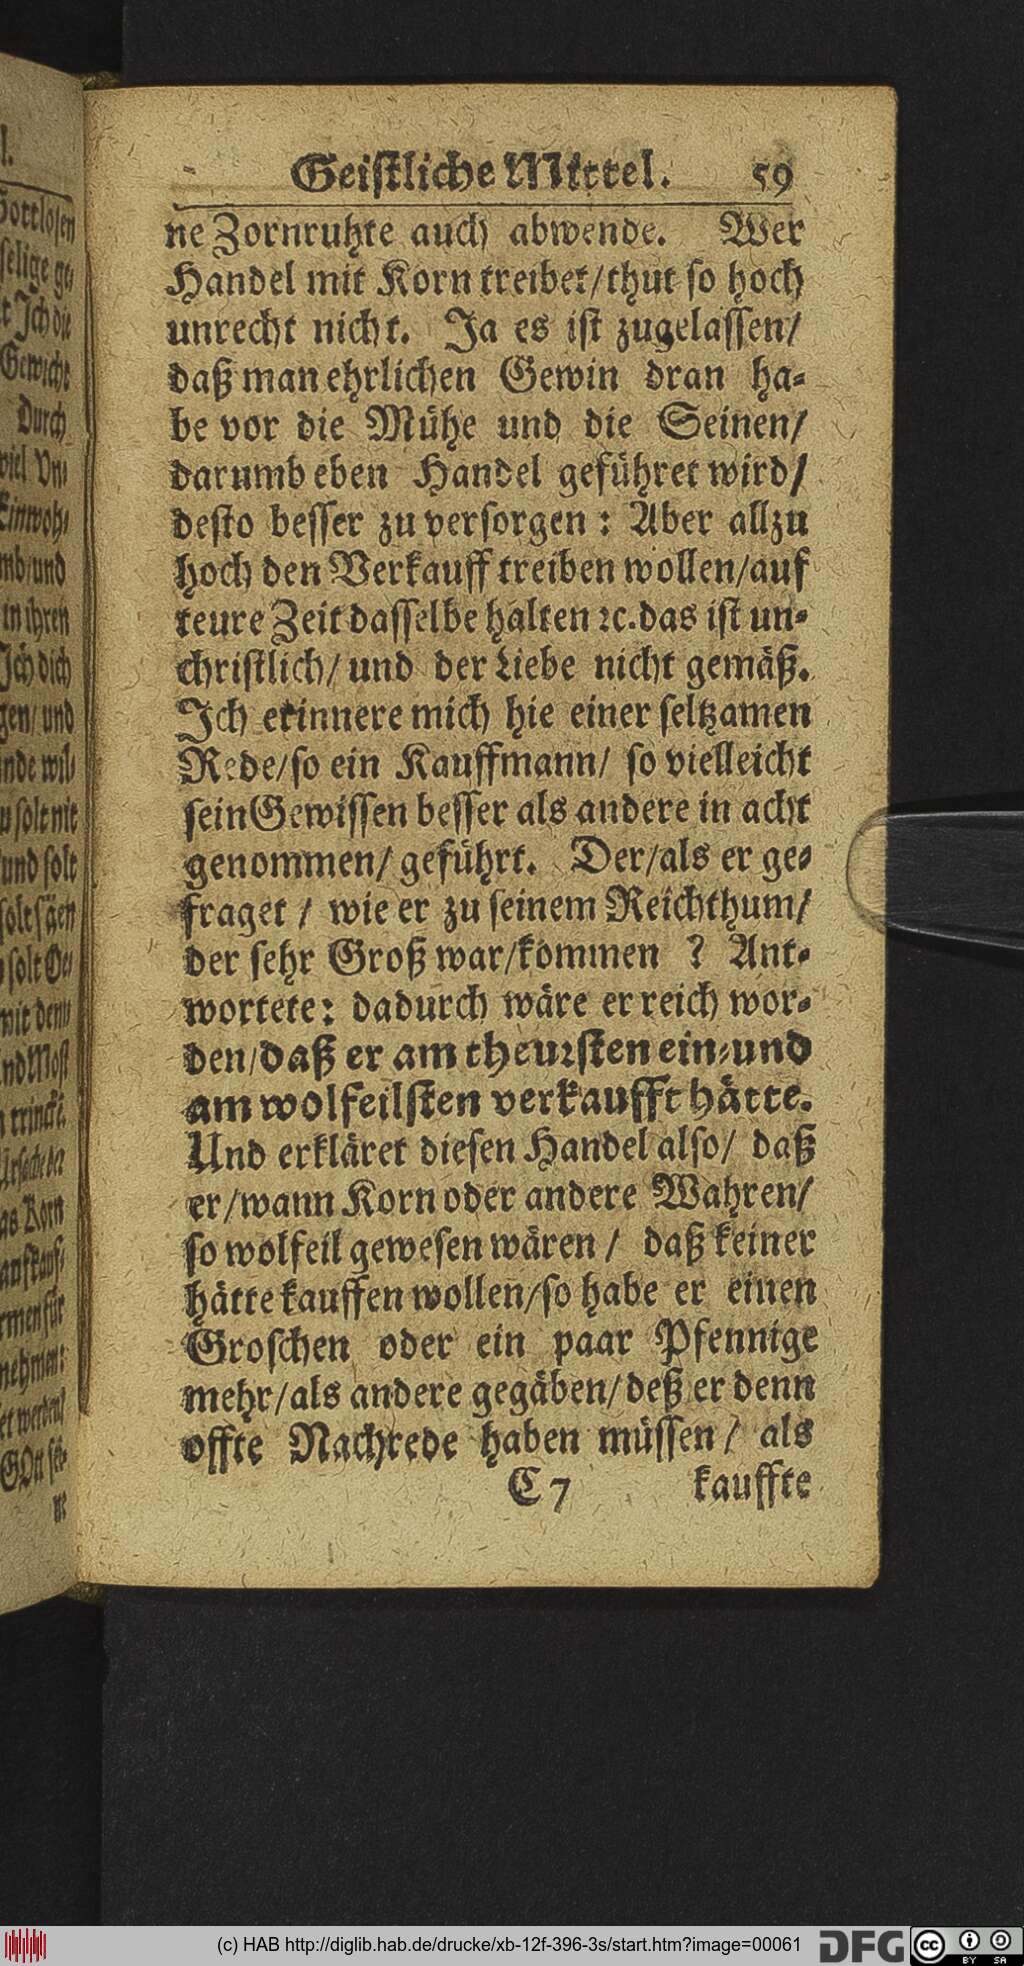 Geistliche Mittel. 59
ne Zornruhte auch abwende. Wer
Handel mit Korn treibet/thut so hoch
unrecht nicht. Ja es ist zugelassen/
daß man ehrlichen Gewin dran ha-
be vor die Mühe und die Seinen/
darumb eben Handel geführet wird/
desto besser zu versorgen: Aber allzu
hoch den Verkauff treiben wollen/auf
teure Zeit dasselbe halten ꝛc. das ist un-
christlich/ und der Liebe nicht gemäß.
Ich erinnere mich hie einer seltzamen
Rede/so ein Kauffmann/ so vielleicht
sein Gewissen besser als andere in acht
genommen/ geführt. Der/als er ge-
fraget / wie er zu seinem Reichthum/
der sehr Groß war/kommen ? Ant-
wortete: dadurch wäre er reich wor-
den/daß er am theursten ein-und
am wolfeilsten verkaufft hätte.
Und erkläret diesen Handel also/ daß
er/wann Korn oder andere Wahren/
so wolfeil gewesen wären / daß keiner
hätte kauffen wollen/so habe er einen
Groschen oder ein paar Pfennige
mehr/als andere gegäben/deß er denn
offte Nachrede haben müssen/ als
C 7 kauffte
Gottlosen
selige ge-
Gewicht
Durch
viel Vn-
Einwoh-
in ihren
Ich dich
gen/und
solt nit
und solt
mit dem
und Most
as Korn
nehmen:
ne
(c) HAB http://diglib.hab.de/drucke/xb-12f-396-3s/start.htm?image=00061
DFG
cc
BY SA